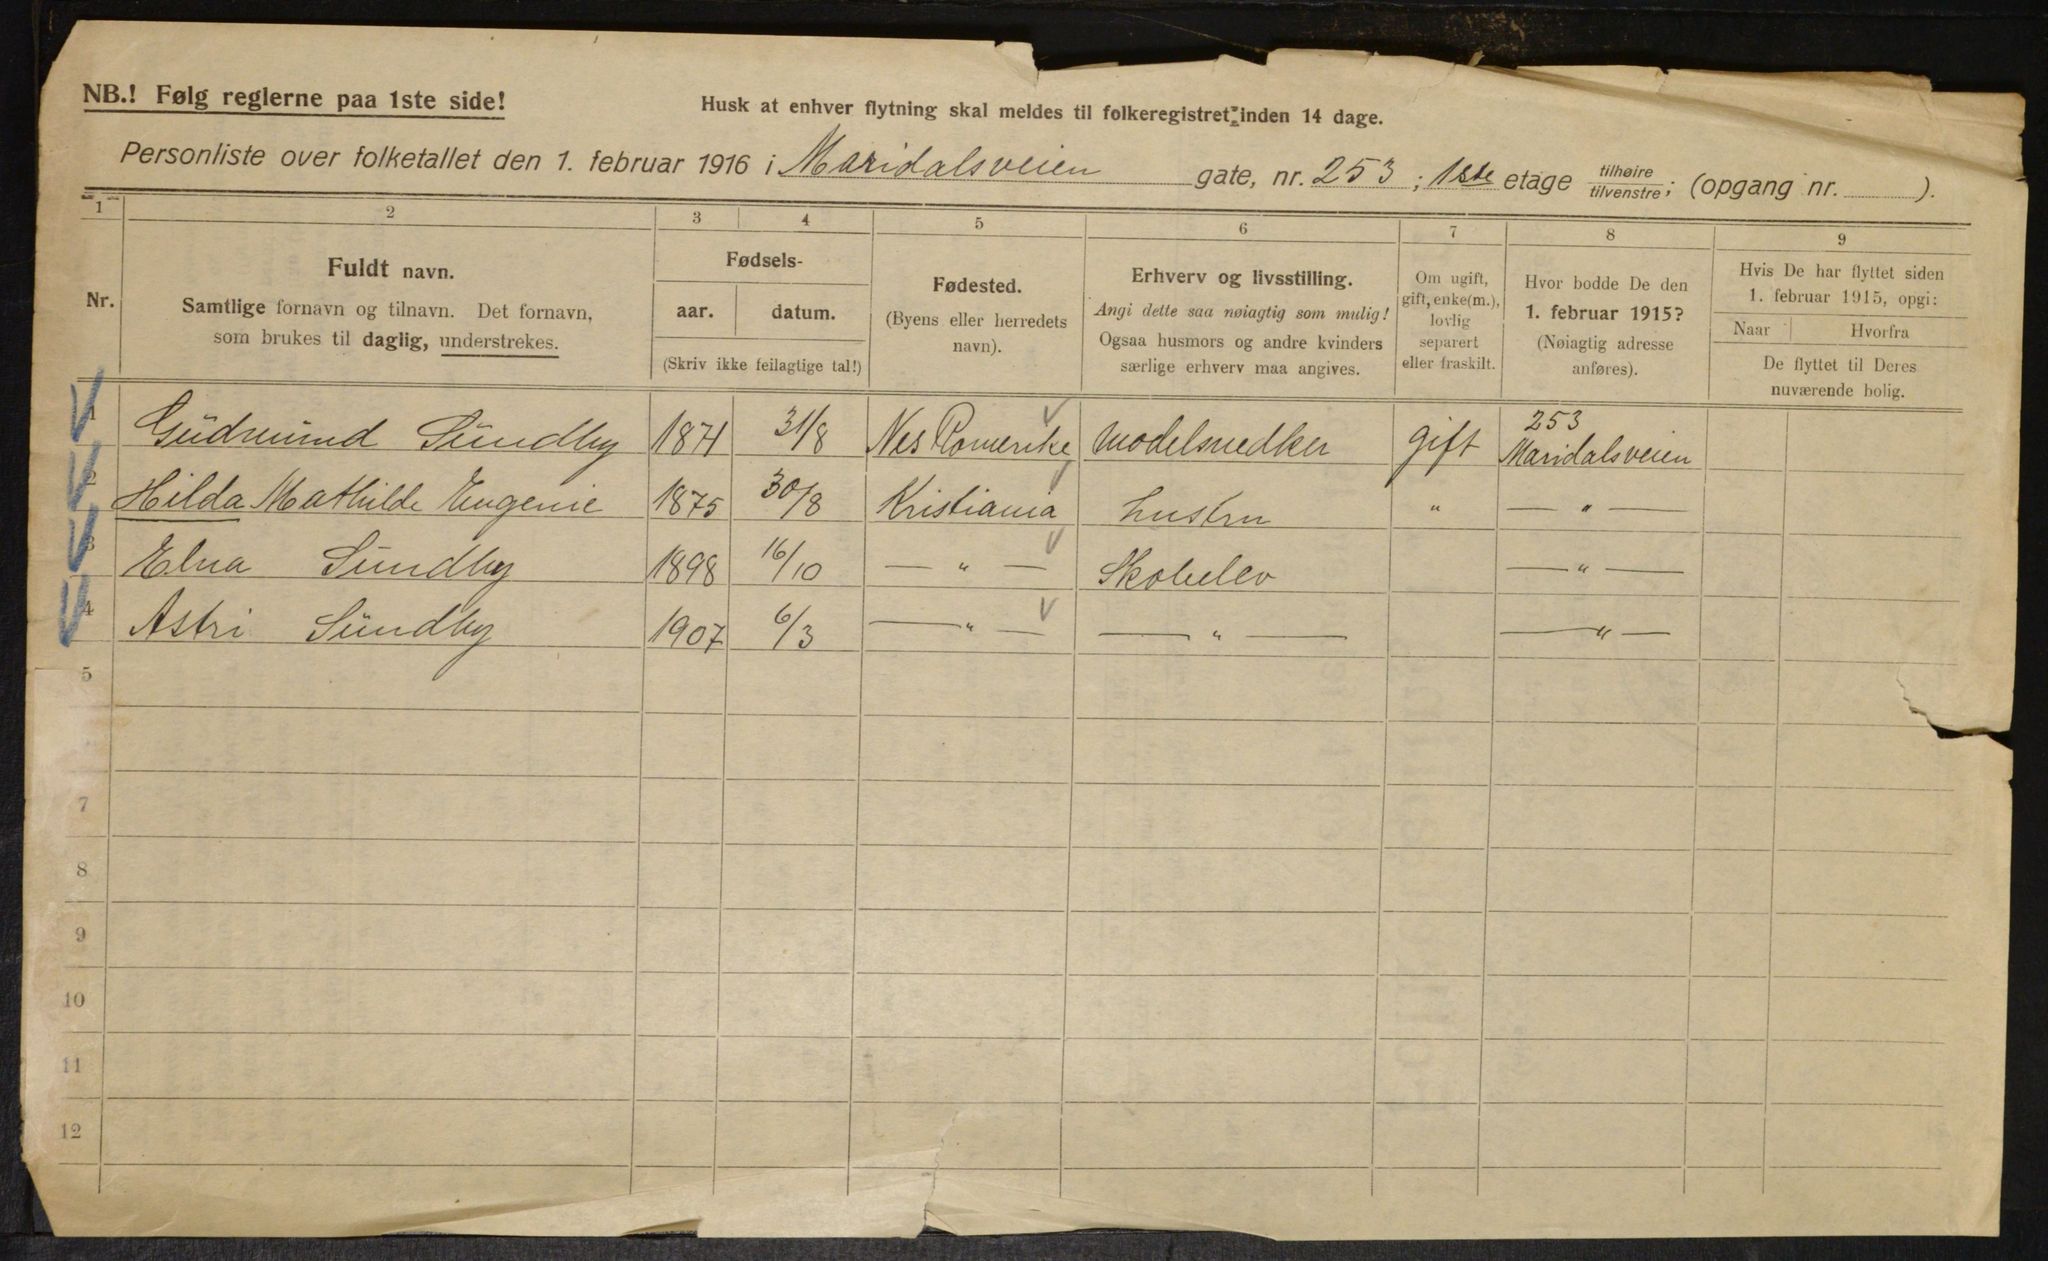 NB.! Følg reglerne paa 1ste side!
Husk at enhver flytning skal meldes til folkeregistret inden 14 dage.
Personliste over folketallet den 1. februar 1916 i Maridalsveien gate, nr. 253; 1ste etage tilhøire/tilvenstre; (opgang nr. ).
1 2 3 4 5 6 7 8 9
Nr.
Fuldt navn.
Samtlige fornavn og tilnavn. Det fornavn,
som brukes til daglig, understrekes.
Fødsels-
aar. datum.
(Skriv ikke feilagtige tal!)
Fødested.
(Byens eller herredets
navn).
Erhverv og livsstilling.
Angi dette saa nøiagtig som mulig!
Ogsaa husmors og andre kvinders
særlige erhverv maa angives.
Om ugift,
gift, enke(m.),
lovlig
separert
eller fraskilt.
Hvor bodde De den
1. februar 1915?
(Nøiagtig adresse
anføres).
Hvis De har flyttet siden
1. februar 1915, opgi:
Naar Hvorfra
De flyttet til Deres
nuværende bolig.
253
1 Gudmund Sundby 1871 31/8 Nes Romerike Modelsnedker gift Maridalsveien
2 Hilda Mathilde Eugenie 1875 30/8 Kristiania hustru " — " —
3 Elna Sundby 1898 16/10 — " — Skoelev — " —
4 Astri Sundby 1907 6/3 — " — — " — — " —
5
7
8
9
10
11
12